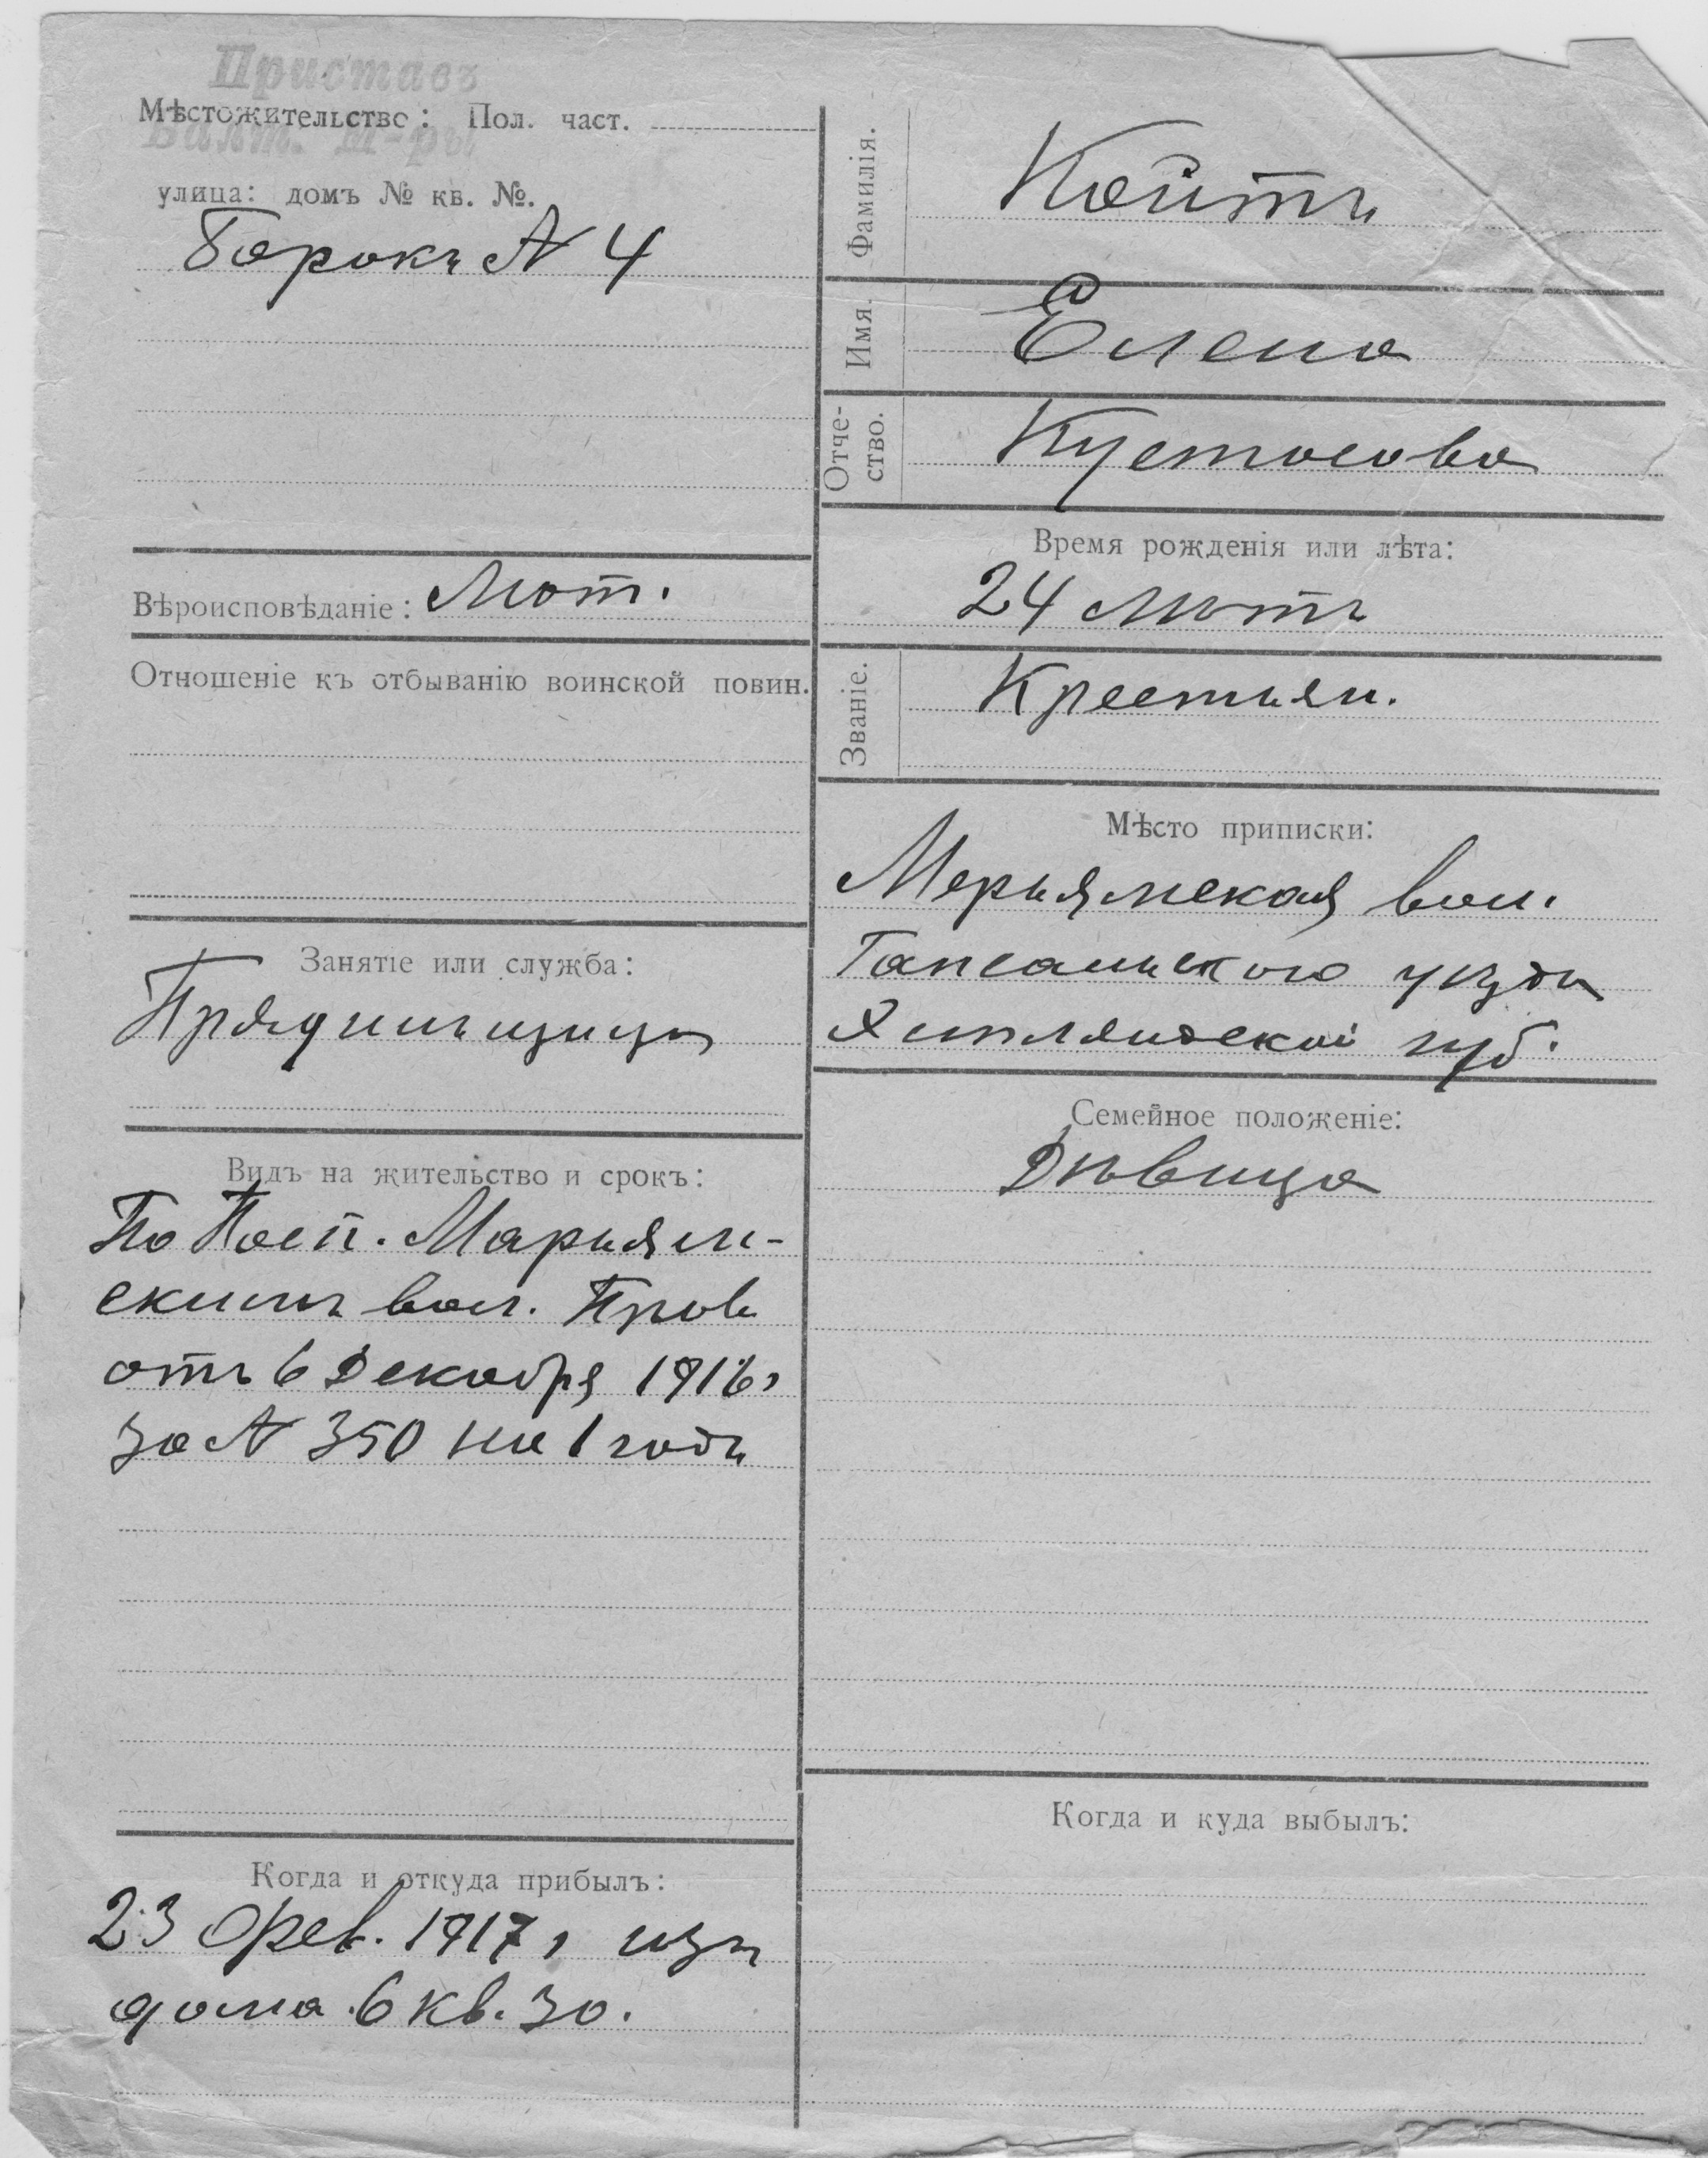 Приставъ
Балт. М-ры
Мѣстожительство: Пол. част.
улица: домъ № кв. №.
Боракъ № 4
Вѣроисповѣданіе: Лют.
Отношеніе къ отбыванію воинской повин.
Занятіе или служба:
Прядильщица
Видъ на жительство и срокъ:
По Пасп. Марьям-
скимъ вол. Прав
отъ 6 Декабря 1916г
за № 350 на 1 годъ
Когда и откуда прибылъ:
23 Фев. 1917г изъ
дома 6 кв. 30.
Фамилія.
Койтъ
Имя.
Елена
Отче-
ство.
Кустасова
Время рожденія или лѣта:
24 лѣтъ
Званіе.
Крестьян.
Мѣсто приписки:
Мерьямская вол.
Гапсальского уѣзда
Эстляндской губ.
Семейное положеніе:
Дѣвица
Когда и куда выбылъ: